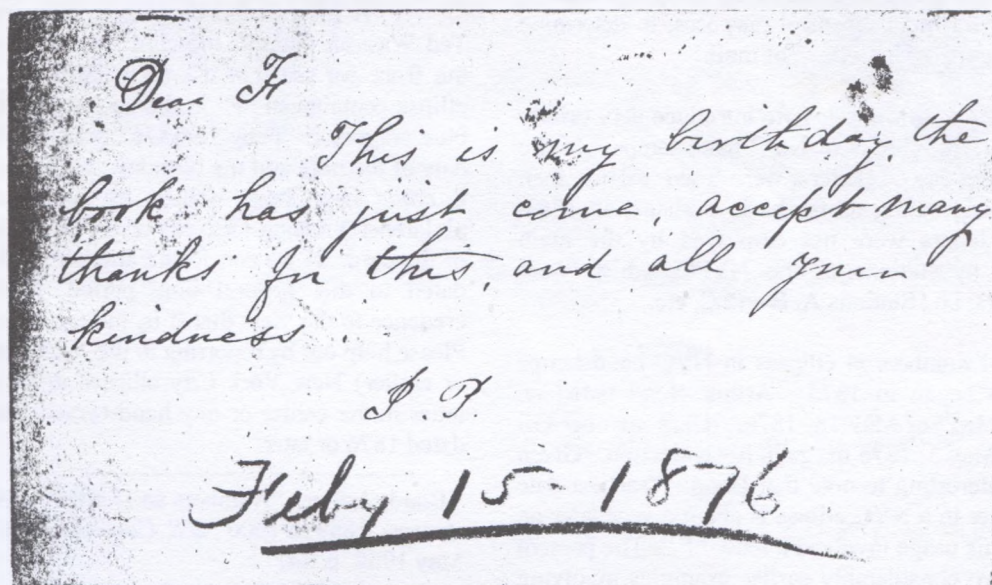 Dear F
This is my birthday. the
book has just come, accept many
thanks for this, and all your
kindness.
Feby 15 - 1876